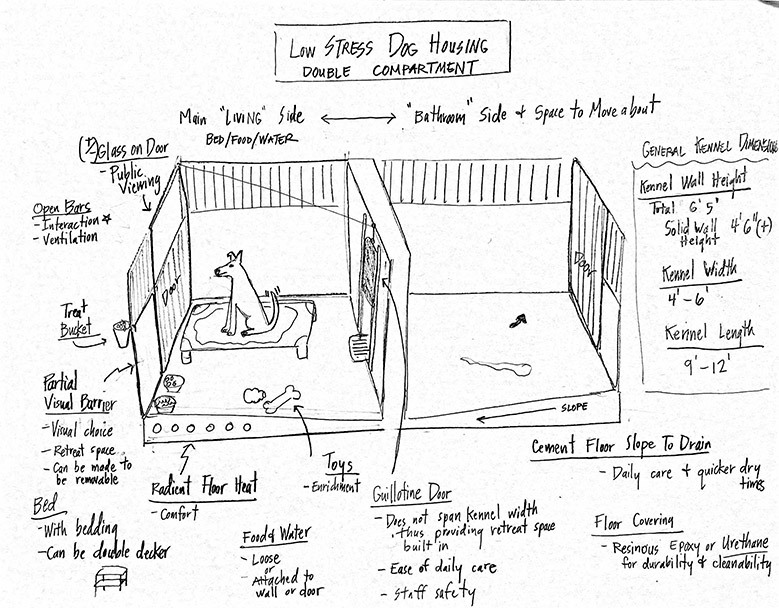 Low Stress Dog Housing
Double Compartment
Main "Living" Side
Bed/Food/Water
"Bathroom" Side & Space to Move about
(+/-) Glass on Door
- Public
Viewing
Open Bars
- Interaction ☆
- Ventilation
Treat
Bucket
Door
Door
General Kennel Dimensions
Kennel Wall Height
Total 6' 5"
Solid Wall 4' 6" (+)
Height
Kennel Width
4' - 6'
Kennel Length
9' - 12'
Partial
Visual Barrier
- Visual choice
- Retreat space
- Can be made to
be removable
← Slope
Cement Floor Slope To Drain
- Daily care & quicker dry
times
Radient Floor Heat
- Comfort
Toys
- Enrichment
Guillotine Door
- Does not span kennel width
, thus providing retreat space
built in
- Ease of daily care
- Staff safety
Bed
- With bedding
- Can be double decker
Food & Water
- Loose
or
- Attached to
wall or door
Floor Covering
- Resinous Epoxy or Urethane
for durability & cleanability